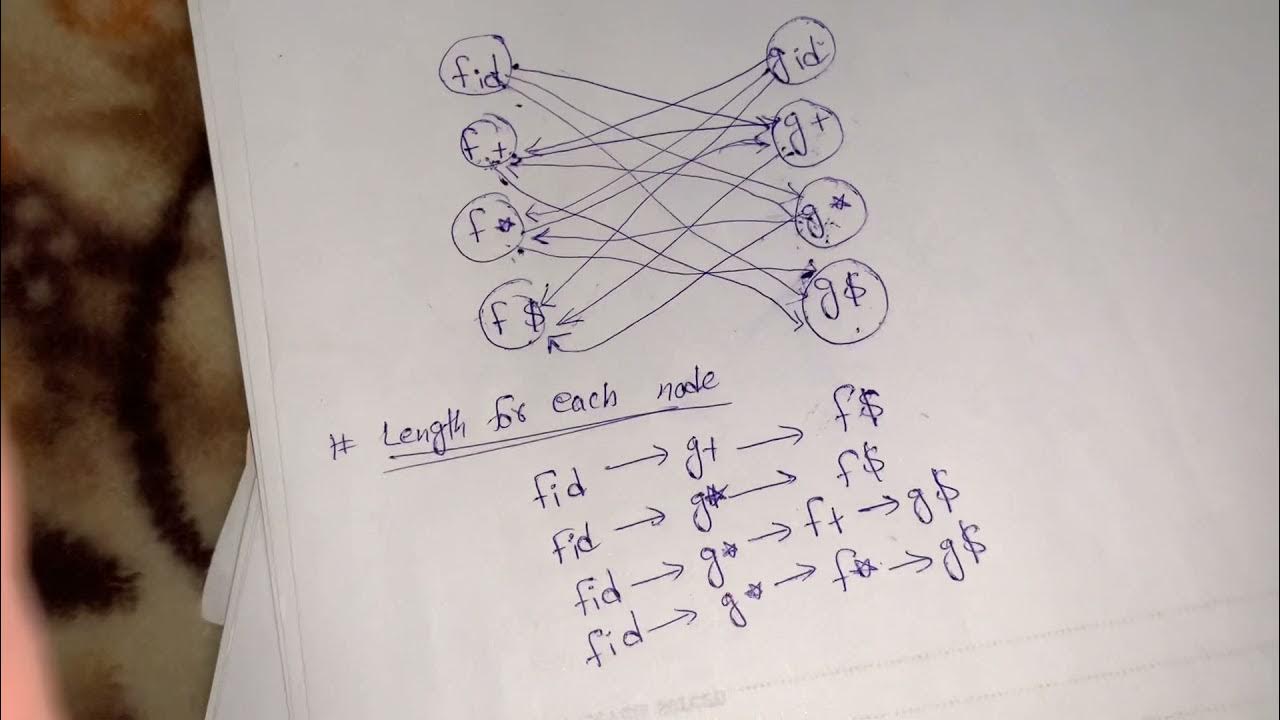 fid gid
f+ g+
f* g*
f$ g$
# Length for each node
fid → g+ → f$
fid → g* → f$
fid → g* → f+ → g$
fid → g* → f* → g$